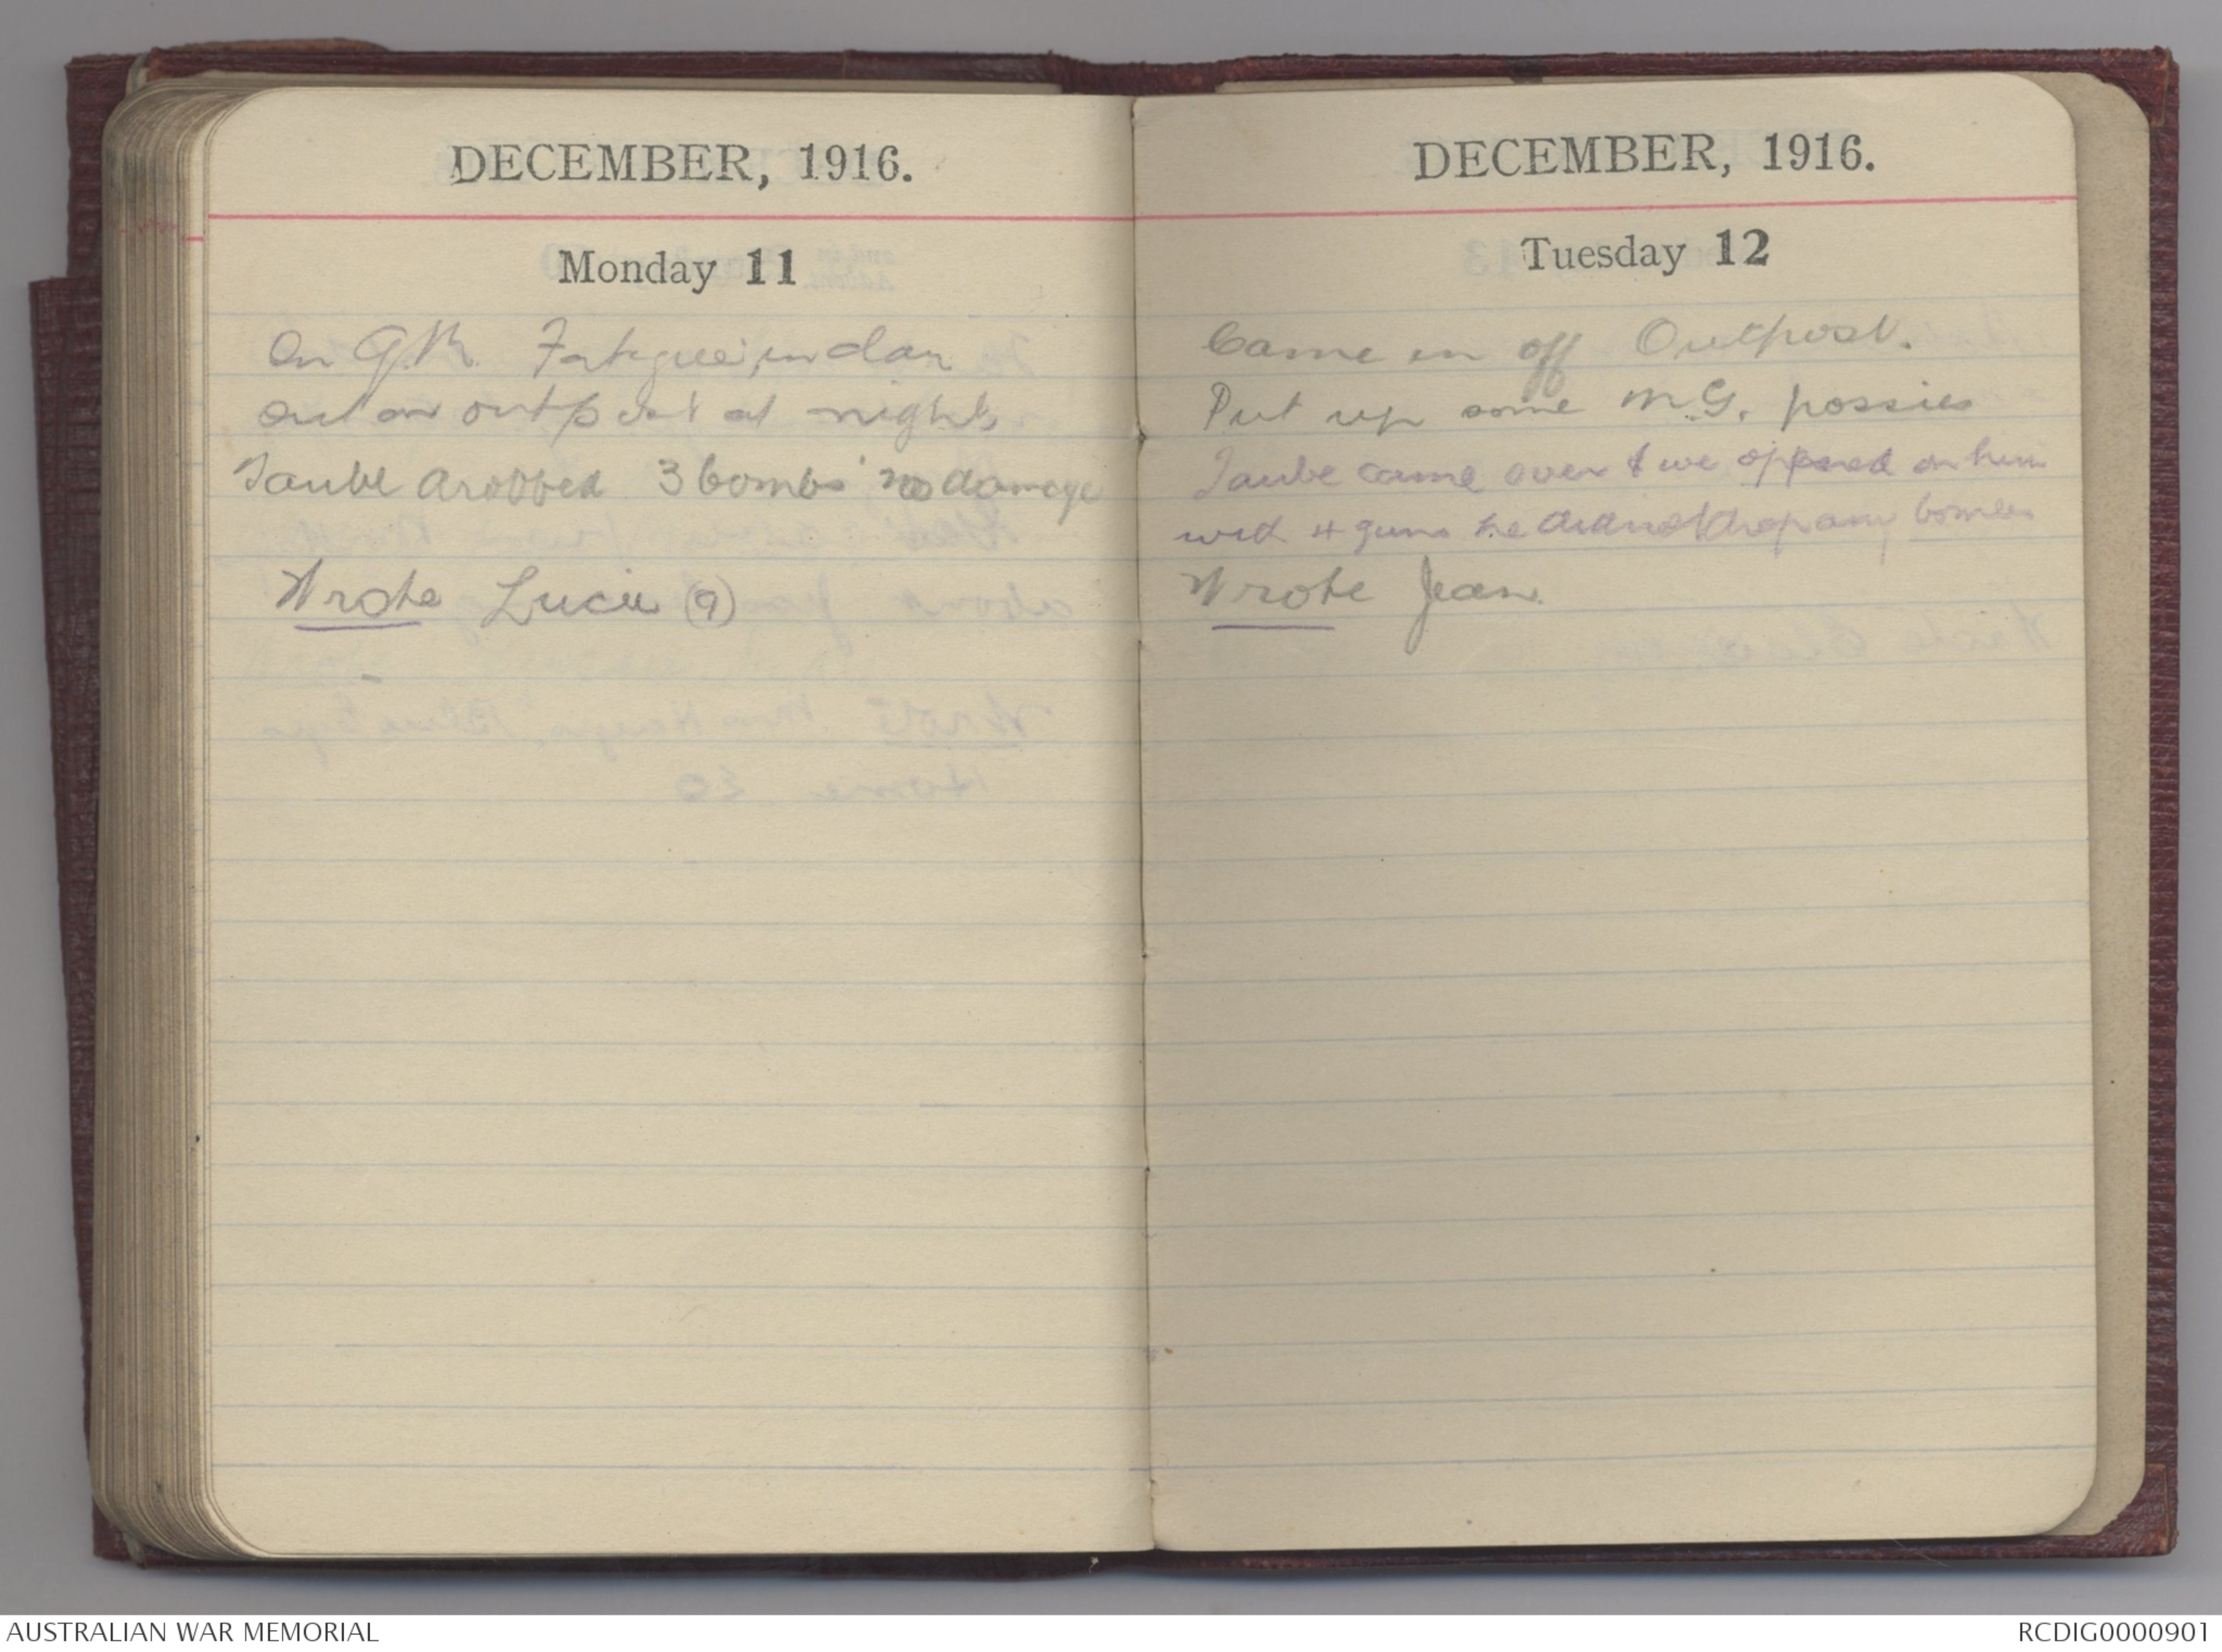 DECEMBER, 1916.
Monday 11
On Q.M. Fatigue in day
out on outpost at night
Taube dropped 3 bombs no damage
Wrote Lucie (9)
DECEMBER, 1916.
Tuesday 12
Came in off Outpost.
Put up some M.G. possies
Taube came over & we opened on him
with 4 guns he did not drop any bombs
Wrote Jean
AUSTRALIAN WAR MEMORIAL
RCDIG0000901